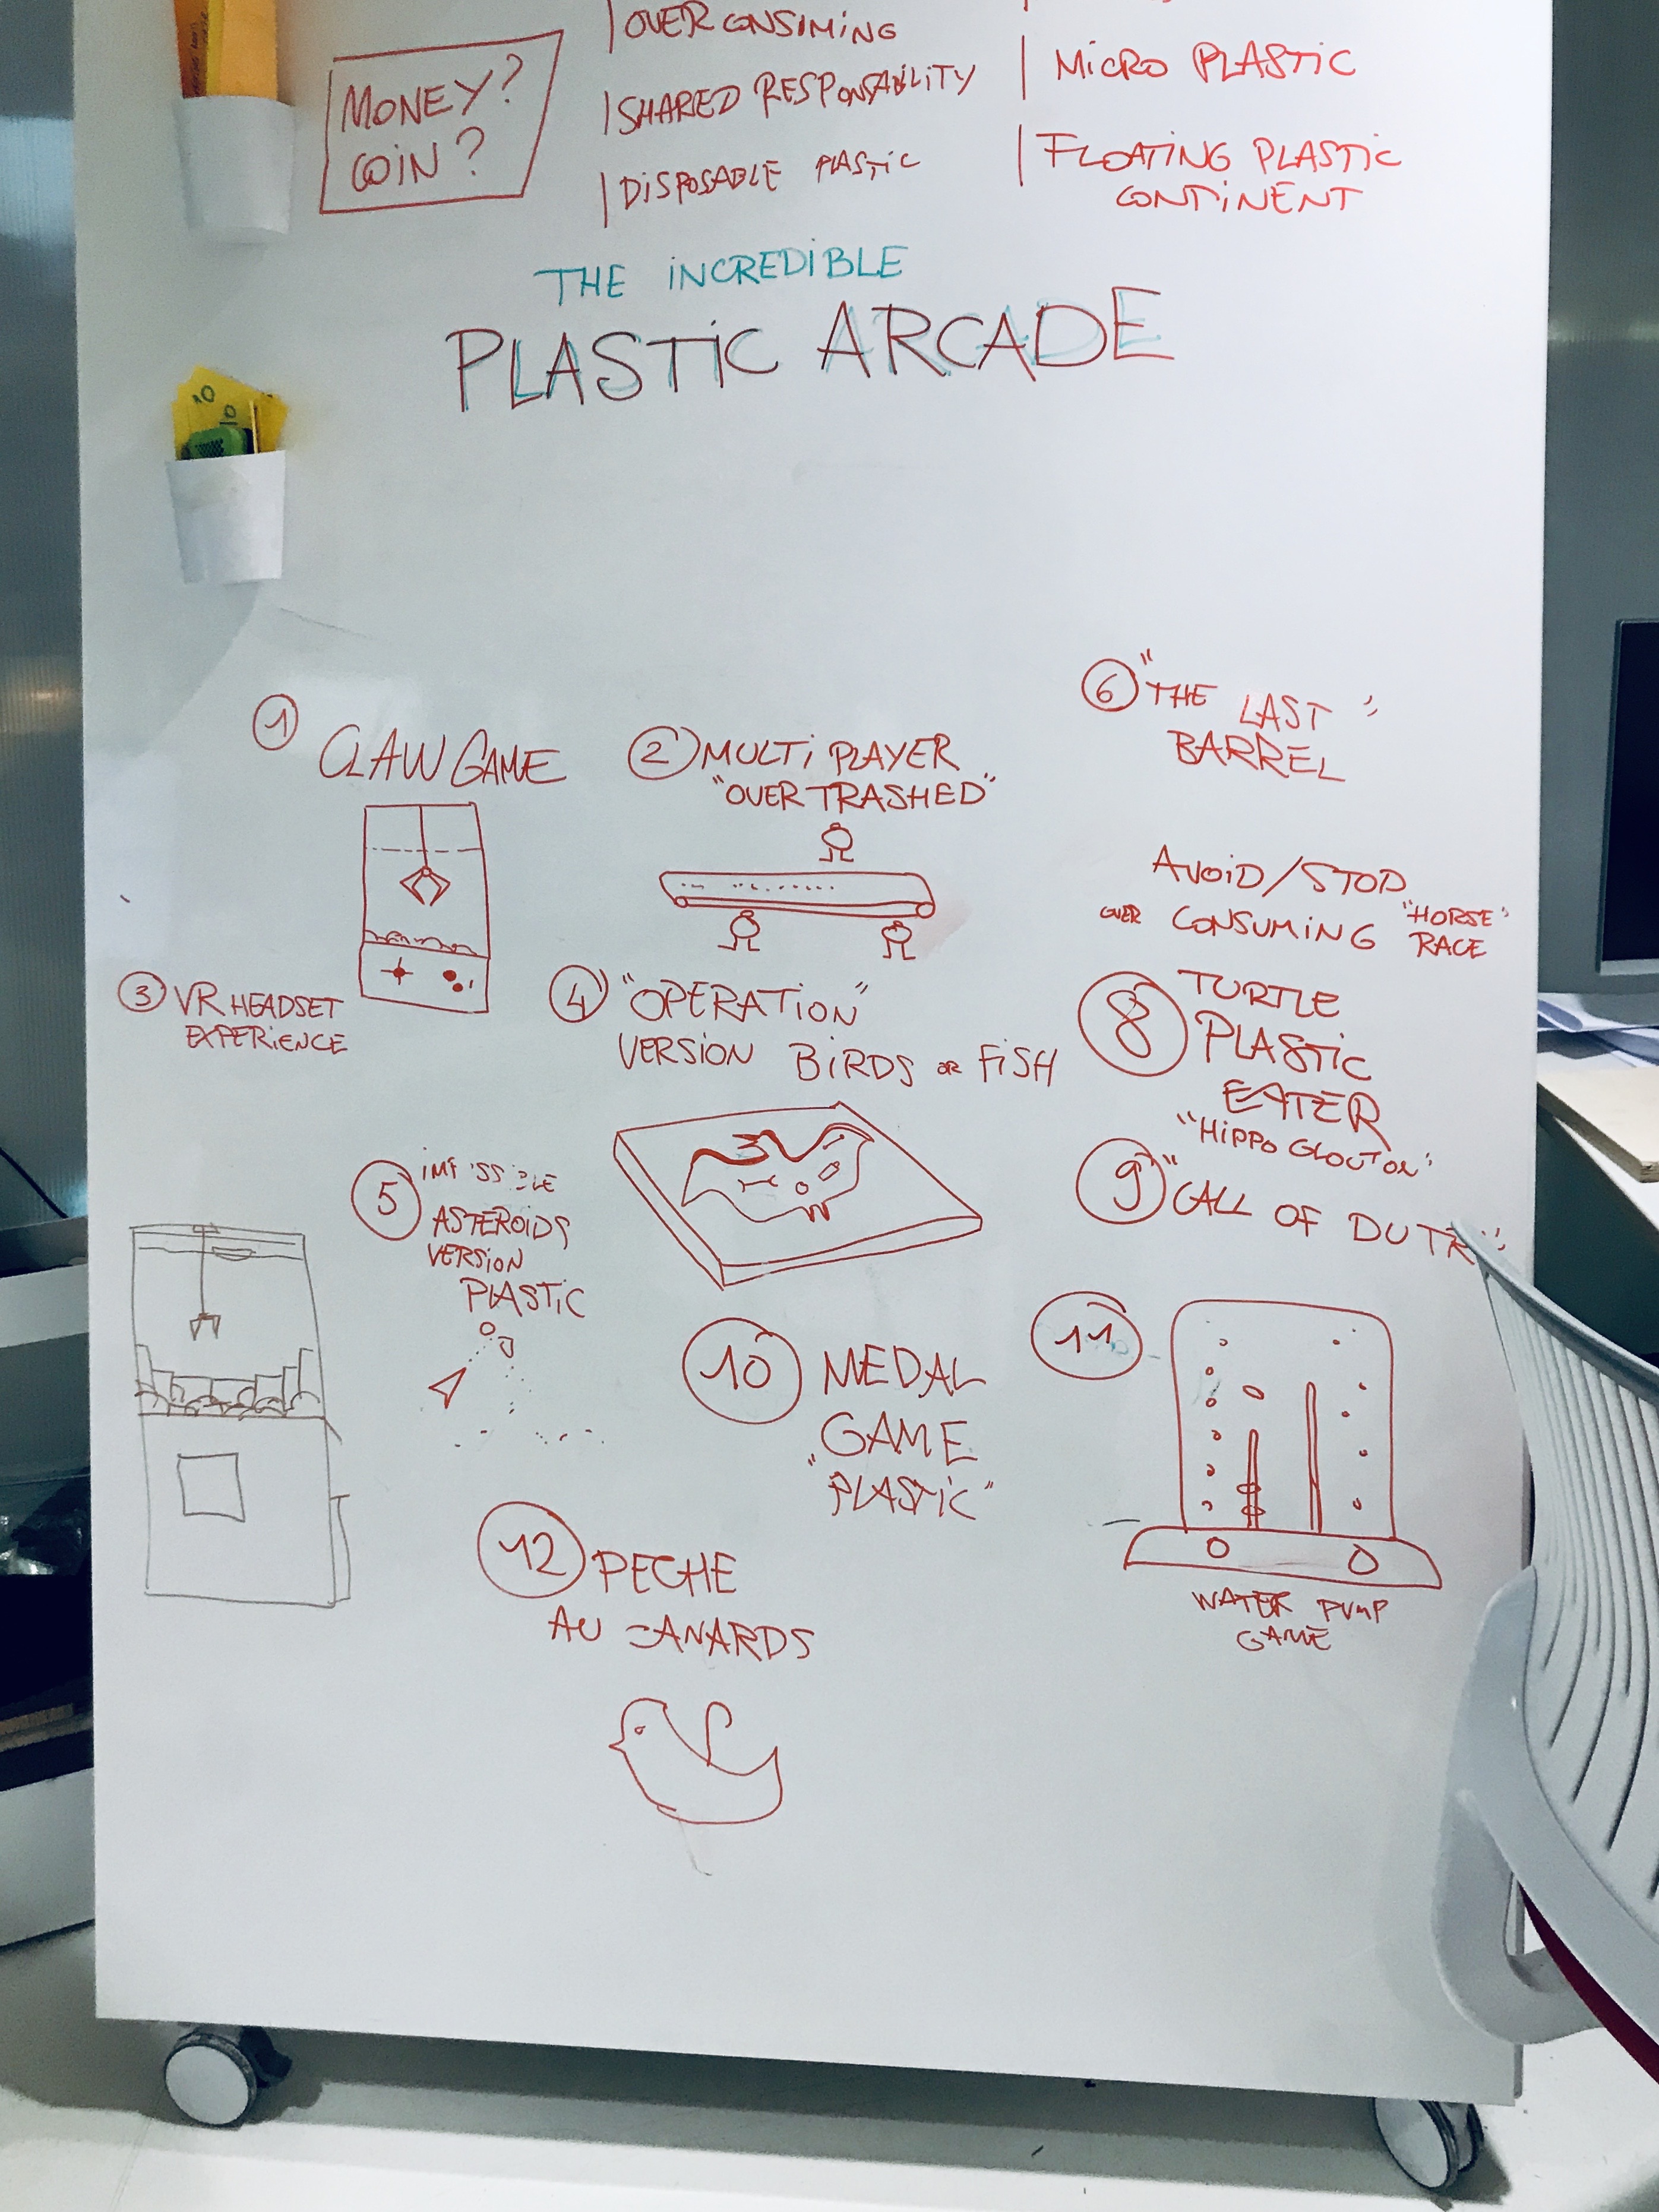 MONEY?
COIN?
| OVER CONSIMING
| SHARED RESPONSABILITY
| DISPOSABLE PLASTIC
| MICRO PLASTIC
| FLOATING PLASTIC
CONTINENT
THE INCREDIBLE
PLASTIC ARCADE
1 CLAW GAME
2 MULTI PLAYER
"OVER TRASHED"
6 "THE LAST"
BARREL
AVOID/STOP
OVER CONSUMING "HORSE"
RACE
3 VR HEADSET
EXPERIENCE
4 "OPERATION"
VERSION BIRDS OR FISH
8 TURTLE
PLASTIC
EATER
"HIPPO GLOUTON"
5
ASTEROIDS
VERSION
PLASTIC
9 "CALL OF DUTY"
10 MEDAL
GAME
"PLASTIC"
11
WATER PUMP
GAME
12 PECHE
AU ANARDS